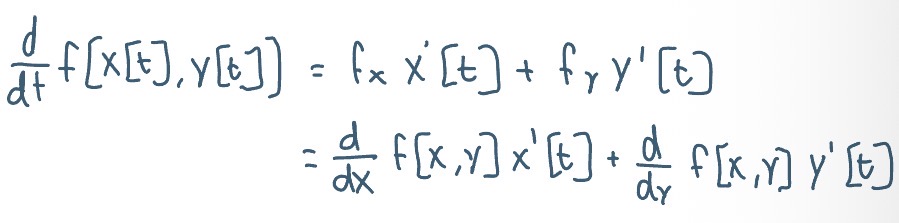 d/dt f[x[t], y[t]] = fx x'[t] + fy y'[t]
= d/dx f[x,y] x'[t] + d/dy f[x,y] y'[t]